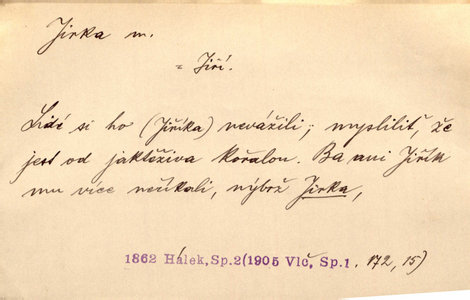 Jirka m.
= Jiří.
Lidé si ho (Jiříka) nevážili; mysliliť, že
jest od jaktěživa kořalou. Ba ani Jiřík
mu více neříkali, nýbrž Jirka,
1862 Hálek, Sp. 2 (1905 Vlč, Sp. 1. 172, 15)